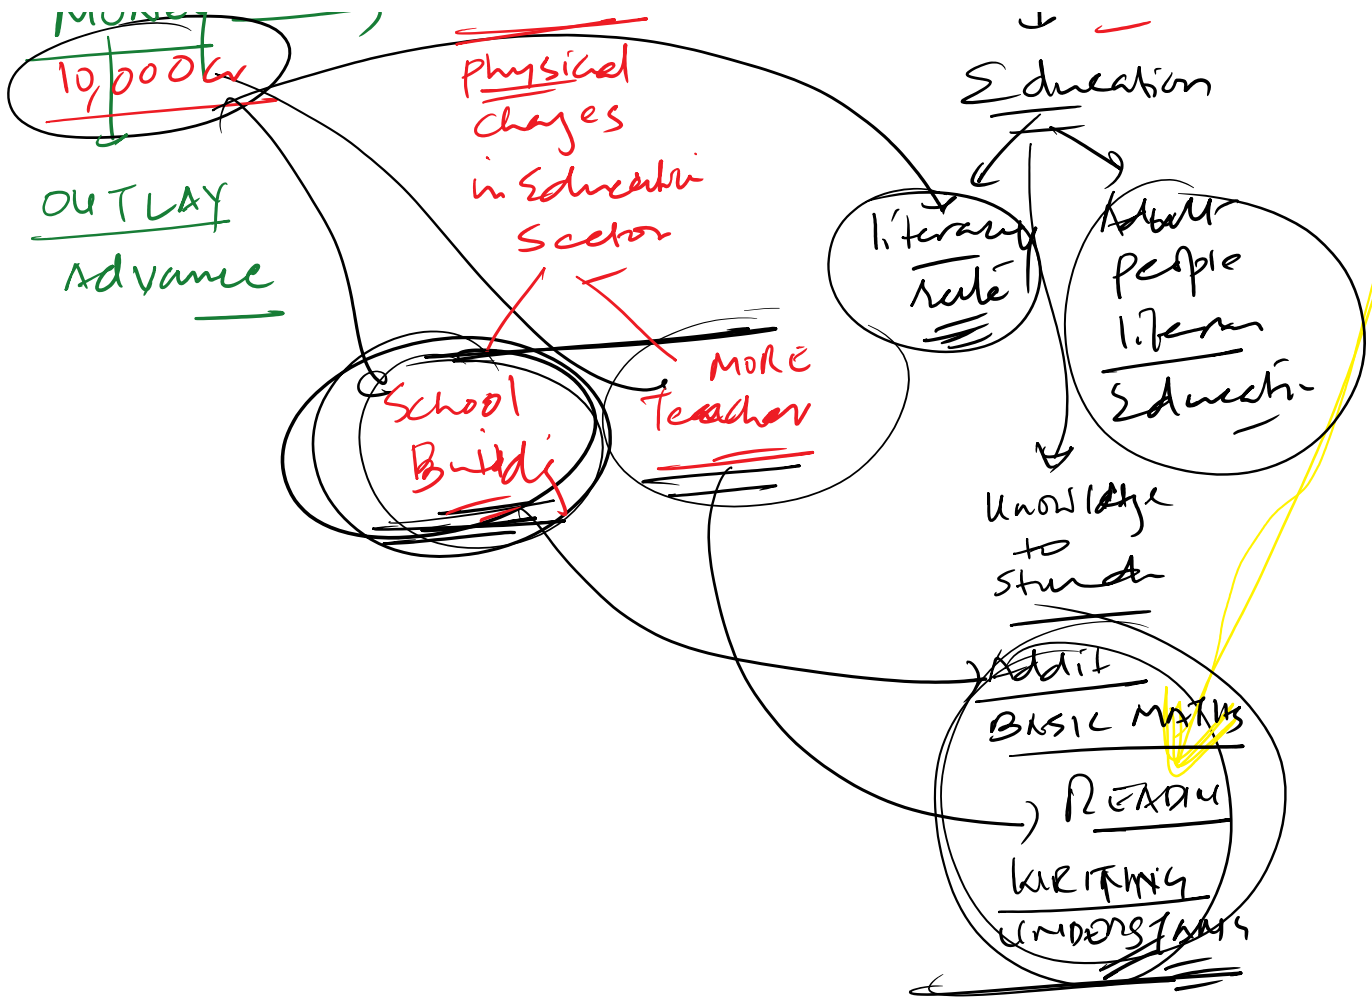 MONEY
10,000 Cr
OUTLAY
Advance
Physical
chages
in Education
Sector
School
Buildig
MORE
Teacher
Education
literacy
rate
Adult
people
literacy
Education
Knowledge
to
Student
Addit
BASIC MATHS
READIN
WRITING
UNDERSTANG